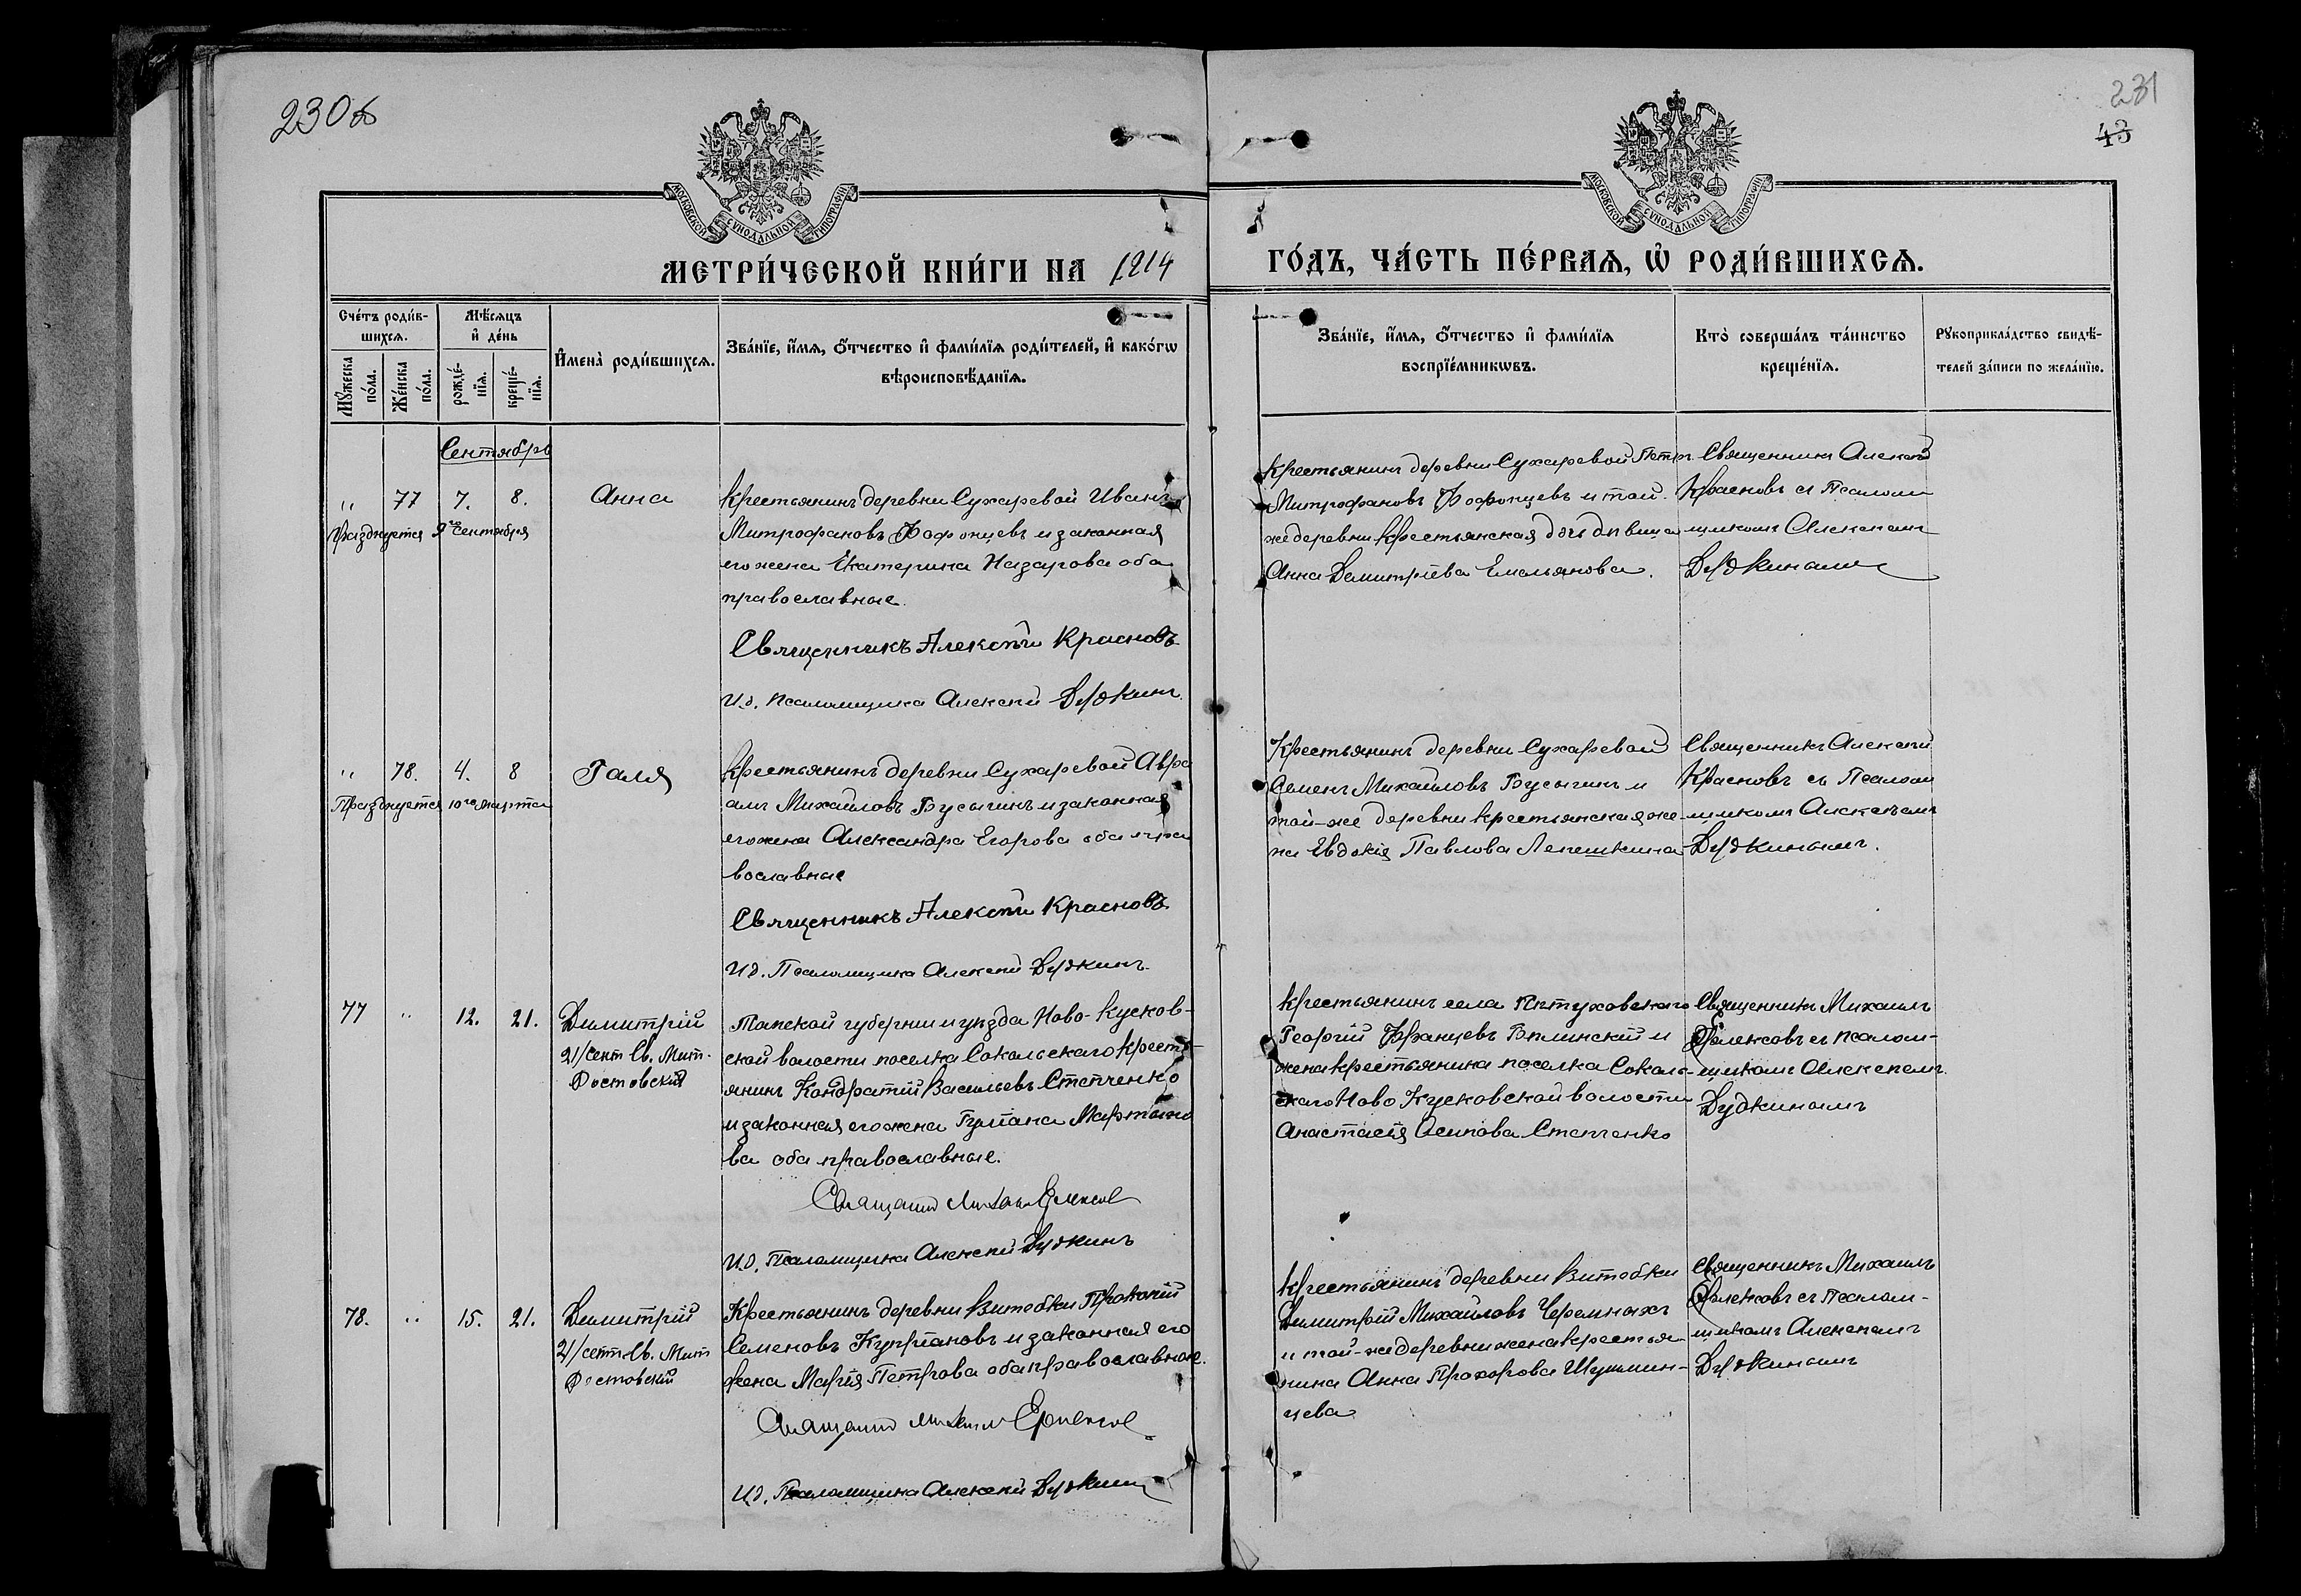 230об
231
43
МОСКОВСКОЙ СѴНОДАЛЬНОЙ ТИПОГРАФІИ
МОСКОВСКОЙ СѴНОДАЛЬНОЙ ТИПОГРАФІИ
МЕТРИ́ЧЕСКОЙ КНИ́ГИ НА 1914
ГО́ДЪ, ЧА́СТЬ ПЕ́РВАЯ, Ѡ҆ РОДИ́ВШИХСЯ.
Сче́тъ роди́в-
шихся.
Мꙋ́жеска по́ла.
Же́нска по́ла.
Мѣ́сяцъ
и҆ де́нь
рожде́-
нїя.
креще́-
нїя.
И҆мена̀ роди́вшихся.
Зва́нїе, и҆́мя, ѻ҆́тчество и҆ фами́лїя роди́телей, и҆ како́гѡ
вѣроисповѣ́данїя.
Зва́нїе, и҆́мя, ѻ҆́тчество и҆ фами́лїя
воспрїе́мникѡвъ.
Кто̀ соверша́лъ та́инство
креще́нїя.
Рꙋкоприкла́дство свидѣ́-
телей за́писи по жела́нїю.
Сентябрь
" 77 7. 8. Анна
Празднуется 9го сентября
Крестьянинъ деревни Сухаревой Иванъ
Митрофановъ Фофонцевъ и законная
его жена Екатерина Назарова оба
православные.
Священникъ Алексѣй Красновъ
И.д. псаломщика Алексѣй Дудкинъ.
Крестьянинъ деревни Сухаревой Петръ
Митрофановъ Фофонцевъ и той-
же деревни крестьянская дочь дѣвица
Анна Димитріева Емельянова.
Священникъ Алексѣй
Красновъ съ Псалом
щикомъ Алексѣемъ
Дудкинымъ
" 78. 4. 8 Галя
Празднуется 10го марта
Крестьянинъ деревни Сухаревой Авра
амъ Михайловъ Бусыгинъ и законная
его жена Александра Егорова оба пра
вославные
Священникъ Алексѣй Красновъ
И.д. Псаломщика Алексѣй Дудкинъ.
Крестьянинъ деревни Сухаревой
Семенъ Михайловъ Бусыгинъ и
той-же деревни крестьянская же-
на Евдокія Павлова Лепешкина
Священникъ Алексѣй
Красновъ съ Псалом
щикомъ Алексѣемъ
Дудкинымъ.
77 " 12. 21. Димитрій
21/сент Св. Мит.
Ростовскій
Томской губерніи и уѣзда Ново-Кусков-
ской волости поселка Сокольскаго крестъ-
янинъ Кондратій Васильевъ Степченко
и законная его жена Гуліана Мартыно
ва оба православные.
Священникъ Михаилъ
И.д. Псаломщика Алексѣй Дудкинъ
Крестьянинъ села Пѣтуховскаго
Георгій Францевъ Бѣлинскій и
жена крестьянина поселка Соколь-
скаго Ново Кусковской волости
Анастасія Осипова Степченко
Священникъ Михаилъ
съ псалом-
щикомъ Алексѣемъ
Дудкинымъ
78. " 15. 21. Димитрій
21/сент. Св. Мит
Ростовскій
Крестьянинъ деревни Витебки Прокопій
Семеновъ Купріановъ и законная его
жена Марія Петрова оба православные.
Священникъ Михаилъ
И.д. Псаломщика Алексѣй Дудкинъ
Крестьянинъ деревни Витебки
Димитрій Михайловъ Черемныхъ
и той-же деревни жена крестья-
нина Анна Прохорова Шушмин-
цева
Священникъ Михаилъ
съ Псалом-
щикомъ Алексѣемъ
Дудкинымъ